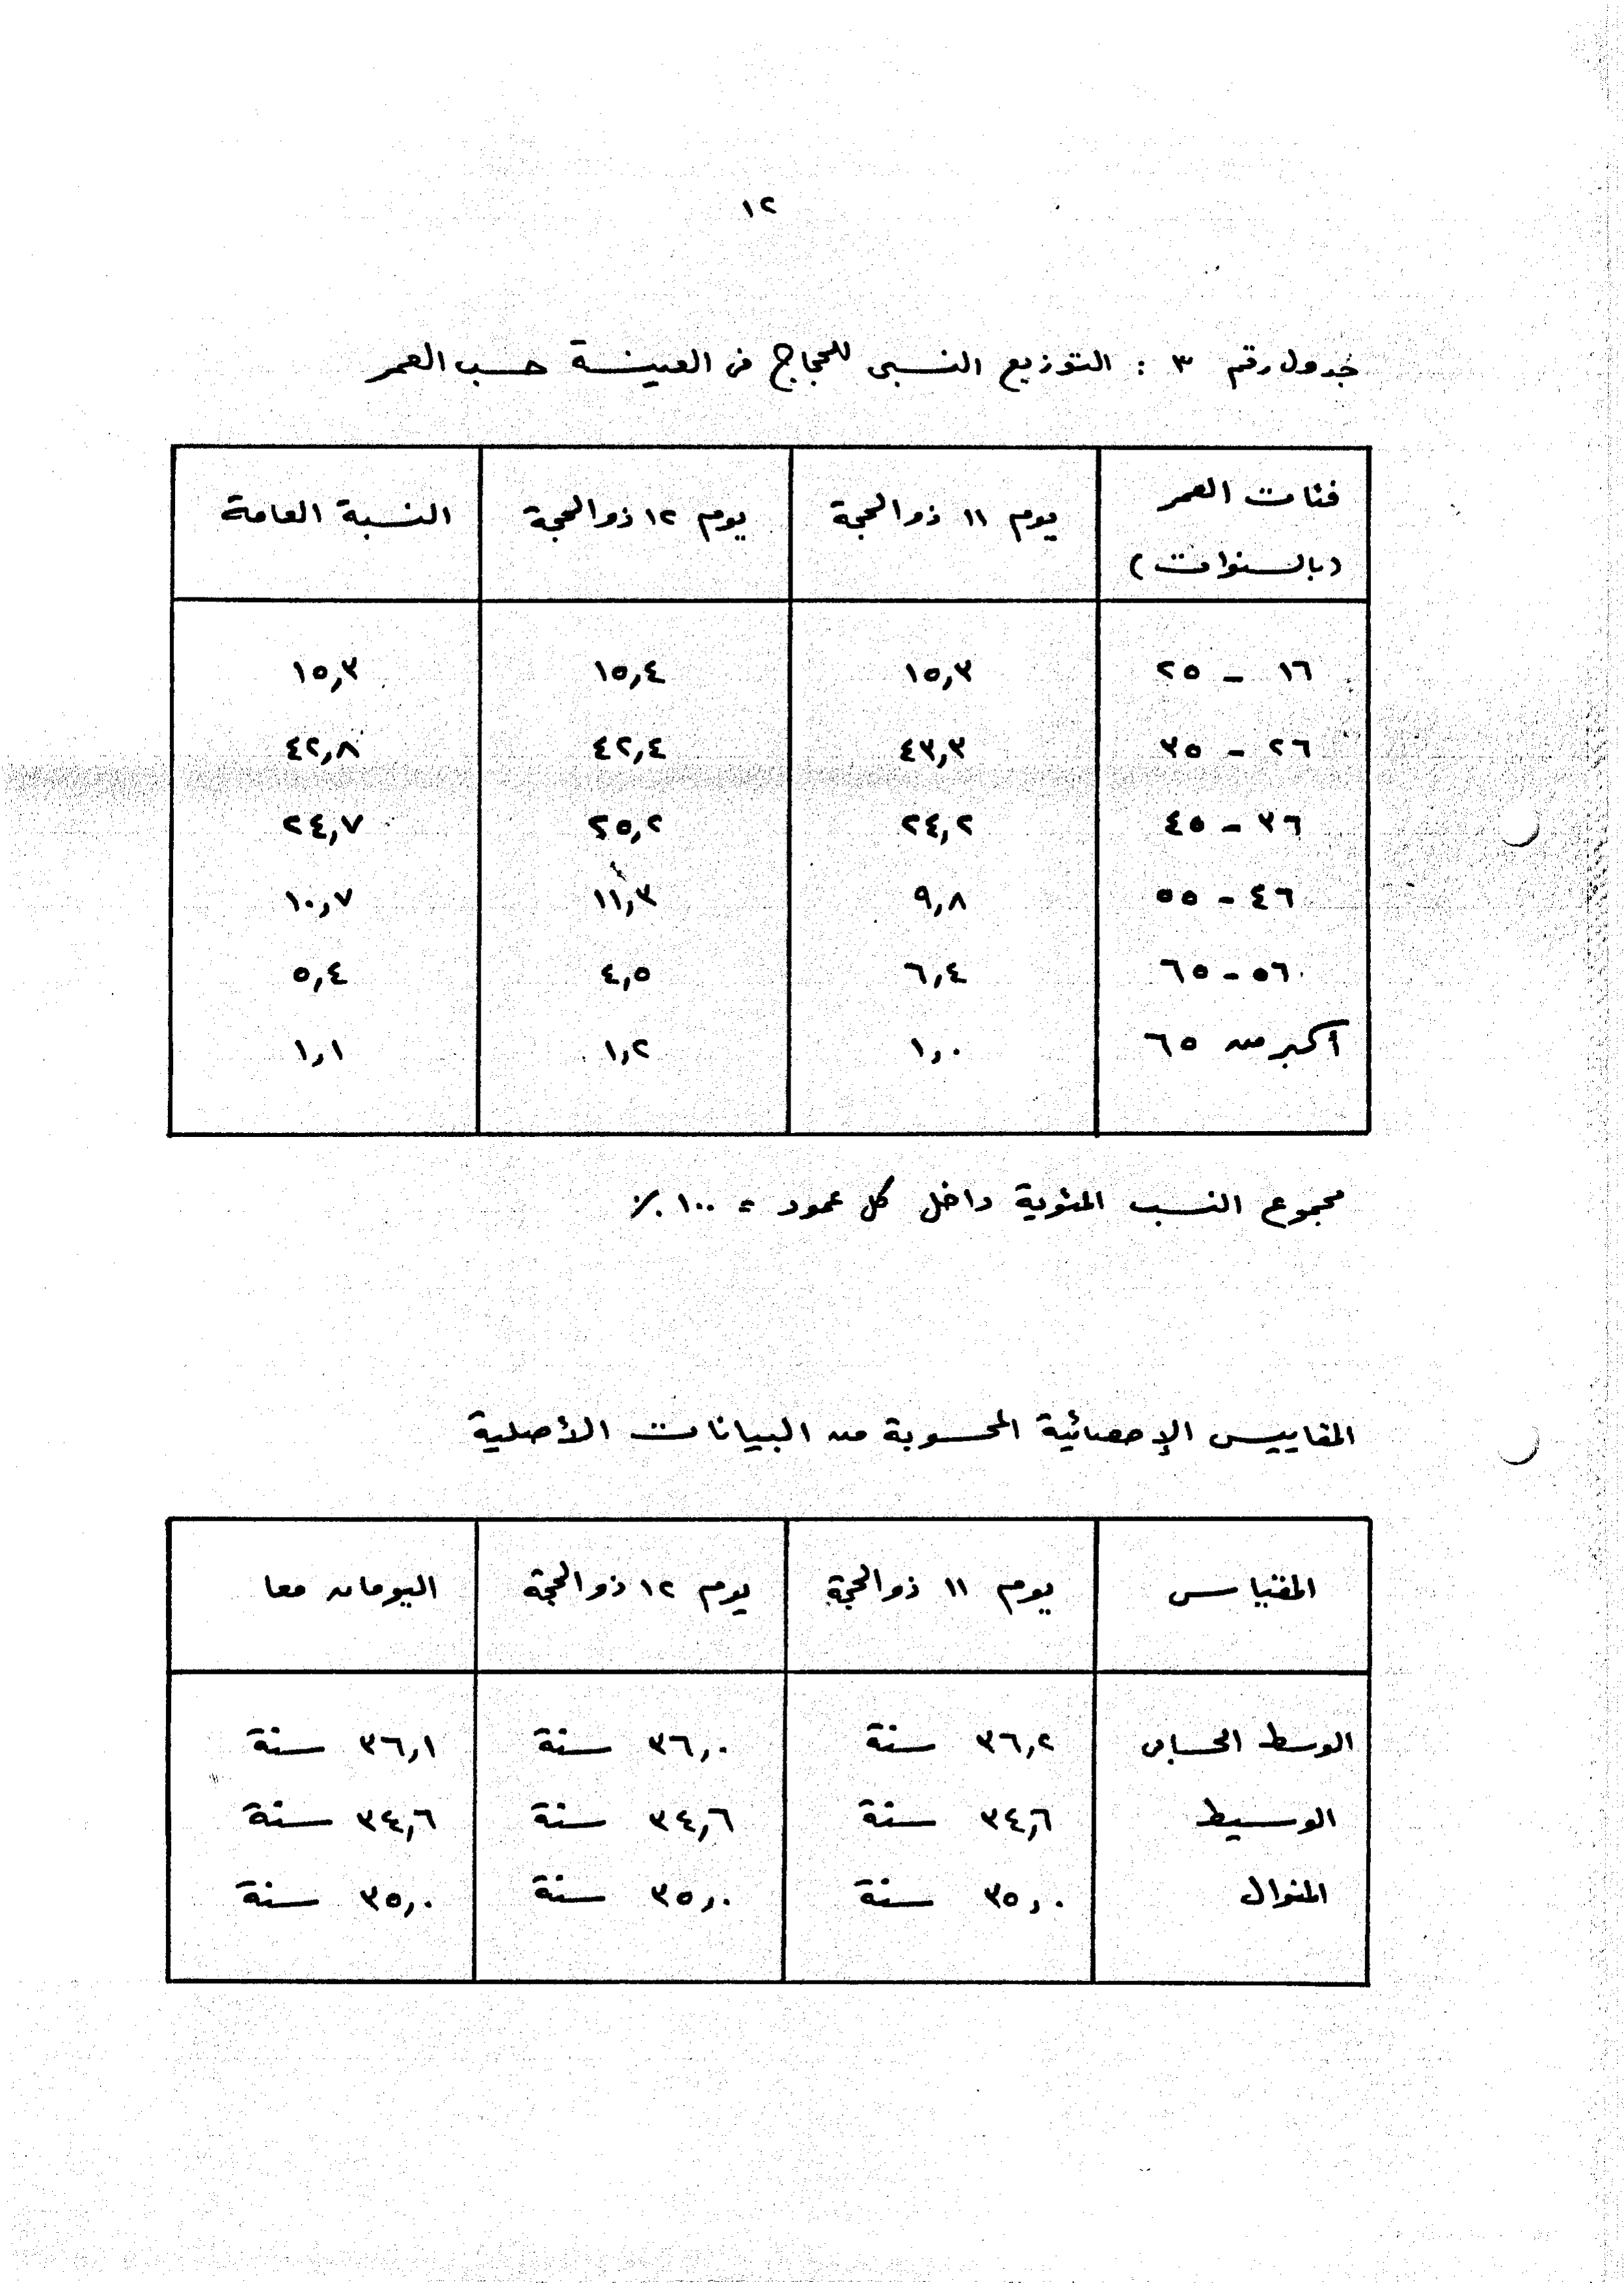 ١٢
جدول رقم ٣ : التوزيع النسبى للحجاج فى العينة حسب العمر
فئات العمر (بالسنوات) يوم ١١ ذو الحجة يوم ١٢ ذو الحجة النسبة العامة
١٦ - ٢٥ ١٥,٣ ١٥,٤ ١٥,٣
٢٦ - ٣٥ ٤٣,٣ ٤٢,٤ ٤٢,٨
٣٦ - ٤٥ ٢٤,٢ ٢٥,٢ ٢٤,٧
٤٦ - ٥٥ ٩,٨ ١١,٣ ١٠,٧
٥٦ - ٦٥ ٦,٤ ٤,٥ ٥,٤
أكبر من ٦٥ ١,٠ ١,٢ ١,١
مجموع النسب المئوية داخل كل عمود = ١٠٠ ٪
المقاييس الإحصائية المحسوبة من البيانات الأصلية
المقياس يوم ١١ ذو الحجة يوم ١٢ ذو الحجة اليومان معا
الوسط الحسابى ٣٦,٢ سنة ٣٦,٠ سنة ٣٦,١ سنة
الوسيط ٣٤,٦ سنة ٣٤,٦ سنة ٣٤,٦ سنة
المنوال ٣٥,٠ سنة ٣٥,٠ سنة ٣٥,٠ سنة